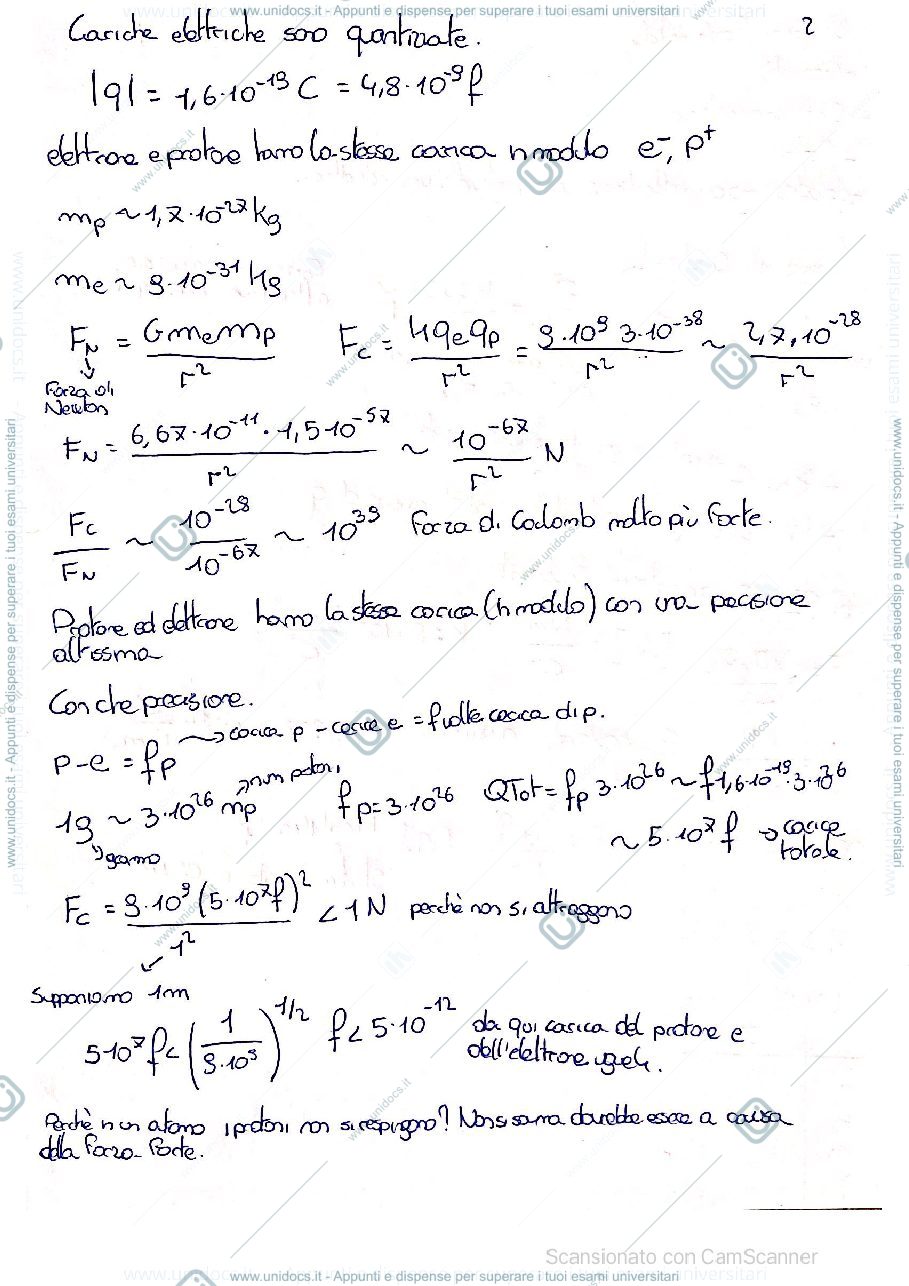 www.unidocs.it - Appunti e dispense per superare i tuoi esami universitari
2
Cariche elettriche sono quantizzate.
|q| = 1,6·10⁻¹⁹ C = 4,8·10⁻⁹ f
elettrone e protone hanno la stessa carica in modulo e⁻, p⁺
mp ~ 1,7·10⁻²⁷ kg
me ~ 9·10⁻³¹ kg
F_N = G me mp / r²    F_C = k qe qp / r² = 9·10⁹ 3·10⁻³⁸ / r² ~ 2,7·10⁻²⁸ / r²
Forza di
Newton
F_N = 6,67·10⁻¹¹ · 1,5·10⁻⁵⁷ / r² ~ 10⁻⁶⁷ / r² N
F_C / F_N ~ 10⁻²⁸ / 10⁻⁶⁷ ~ 10³⁹ Forza di Coulomb molto più forte.
Protone ed elettrone hanno la stessa carica (in modulo) con una precisione
altissima
Con che precisione.
p-e = fp → carica p - carica e = f volte carica di p.
1g ~ 3·10²⁶ mp → num protoni    fp = 3·10²⁶    QTot = fp 3·10²⁶ ~ f 1,6·10⁻¹⁹·3·10²⁶
grammo
~ 5·10⁷ f → carica
totale.
F_C = 9·10⁹ (5·10⁷ f)² / 1² < 1 N perchè non si attraggono
Supponiamo 1m
5·10⁷ f < (1 / 9·10⁹)^1/2    f < 5·10⁻¹² da qui carica del protone e
dell'elettrone uguali.
Perchè in un atomo i protoni non si respingono? Non si sa ma dovrebbe essere a causa
della forza forte.
Scansionato con CamScanner
www.unidocs.it - Appunti e dispense per superare i tuoi esami universitari